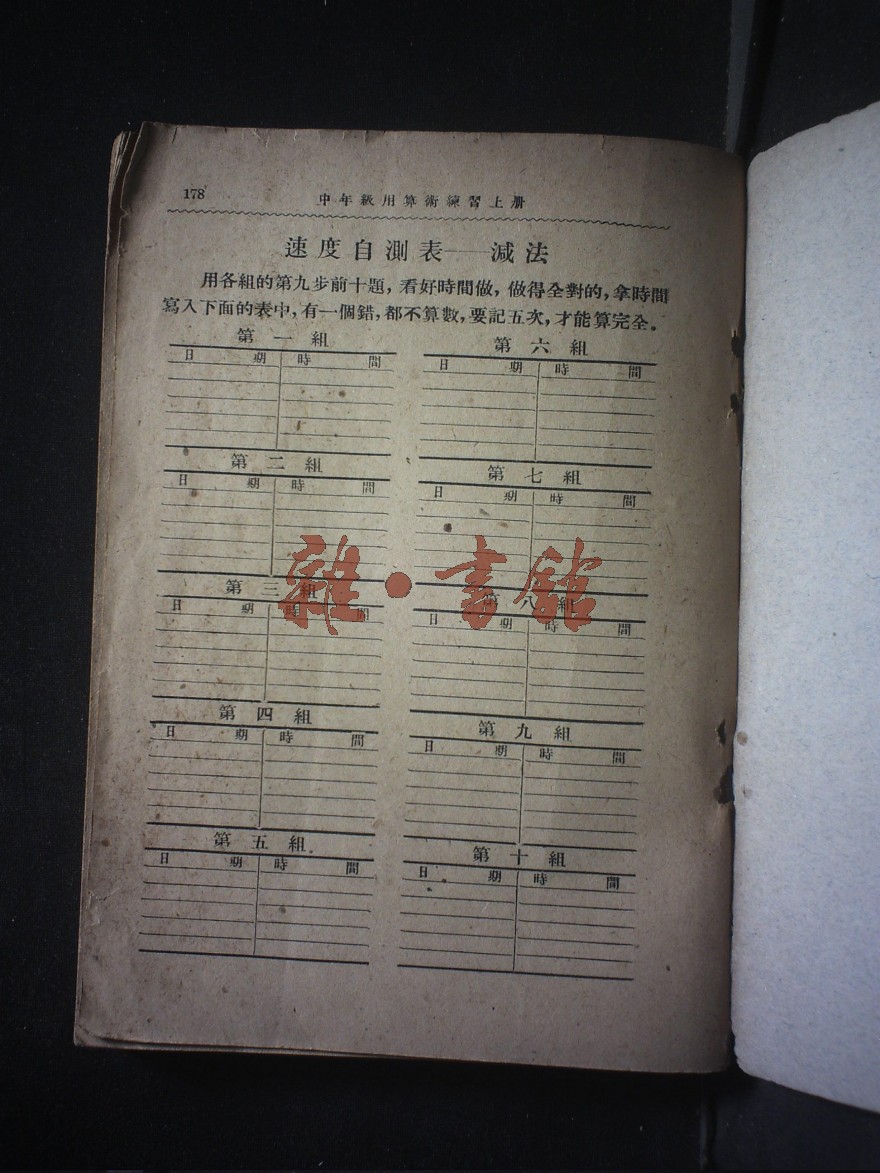 178
中年級用算術練習上册
速度自測表——減法
用各組的第九步前十題，看好時間做，做得全對的，拿時間
寫入下面的表中，有一個錯，都不算數，要記五次，才能算完全。
第一組
日期 時間
第二組
日期 時間
第三組
日期 時間
第四組
日期 時間
第五組
日期 時間
第六組
日期 時間
第七組
日期 時間
第八組
日期 時間
第九組
日期 時間
第十組
日期 時間
雜·書館